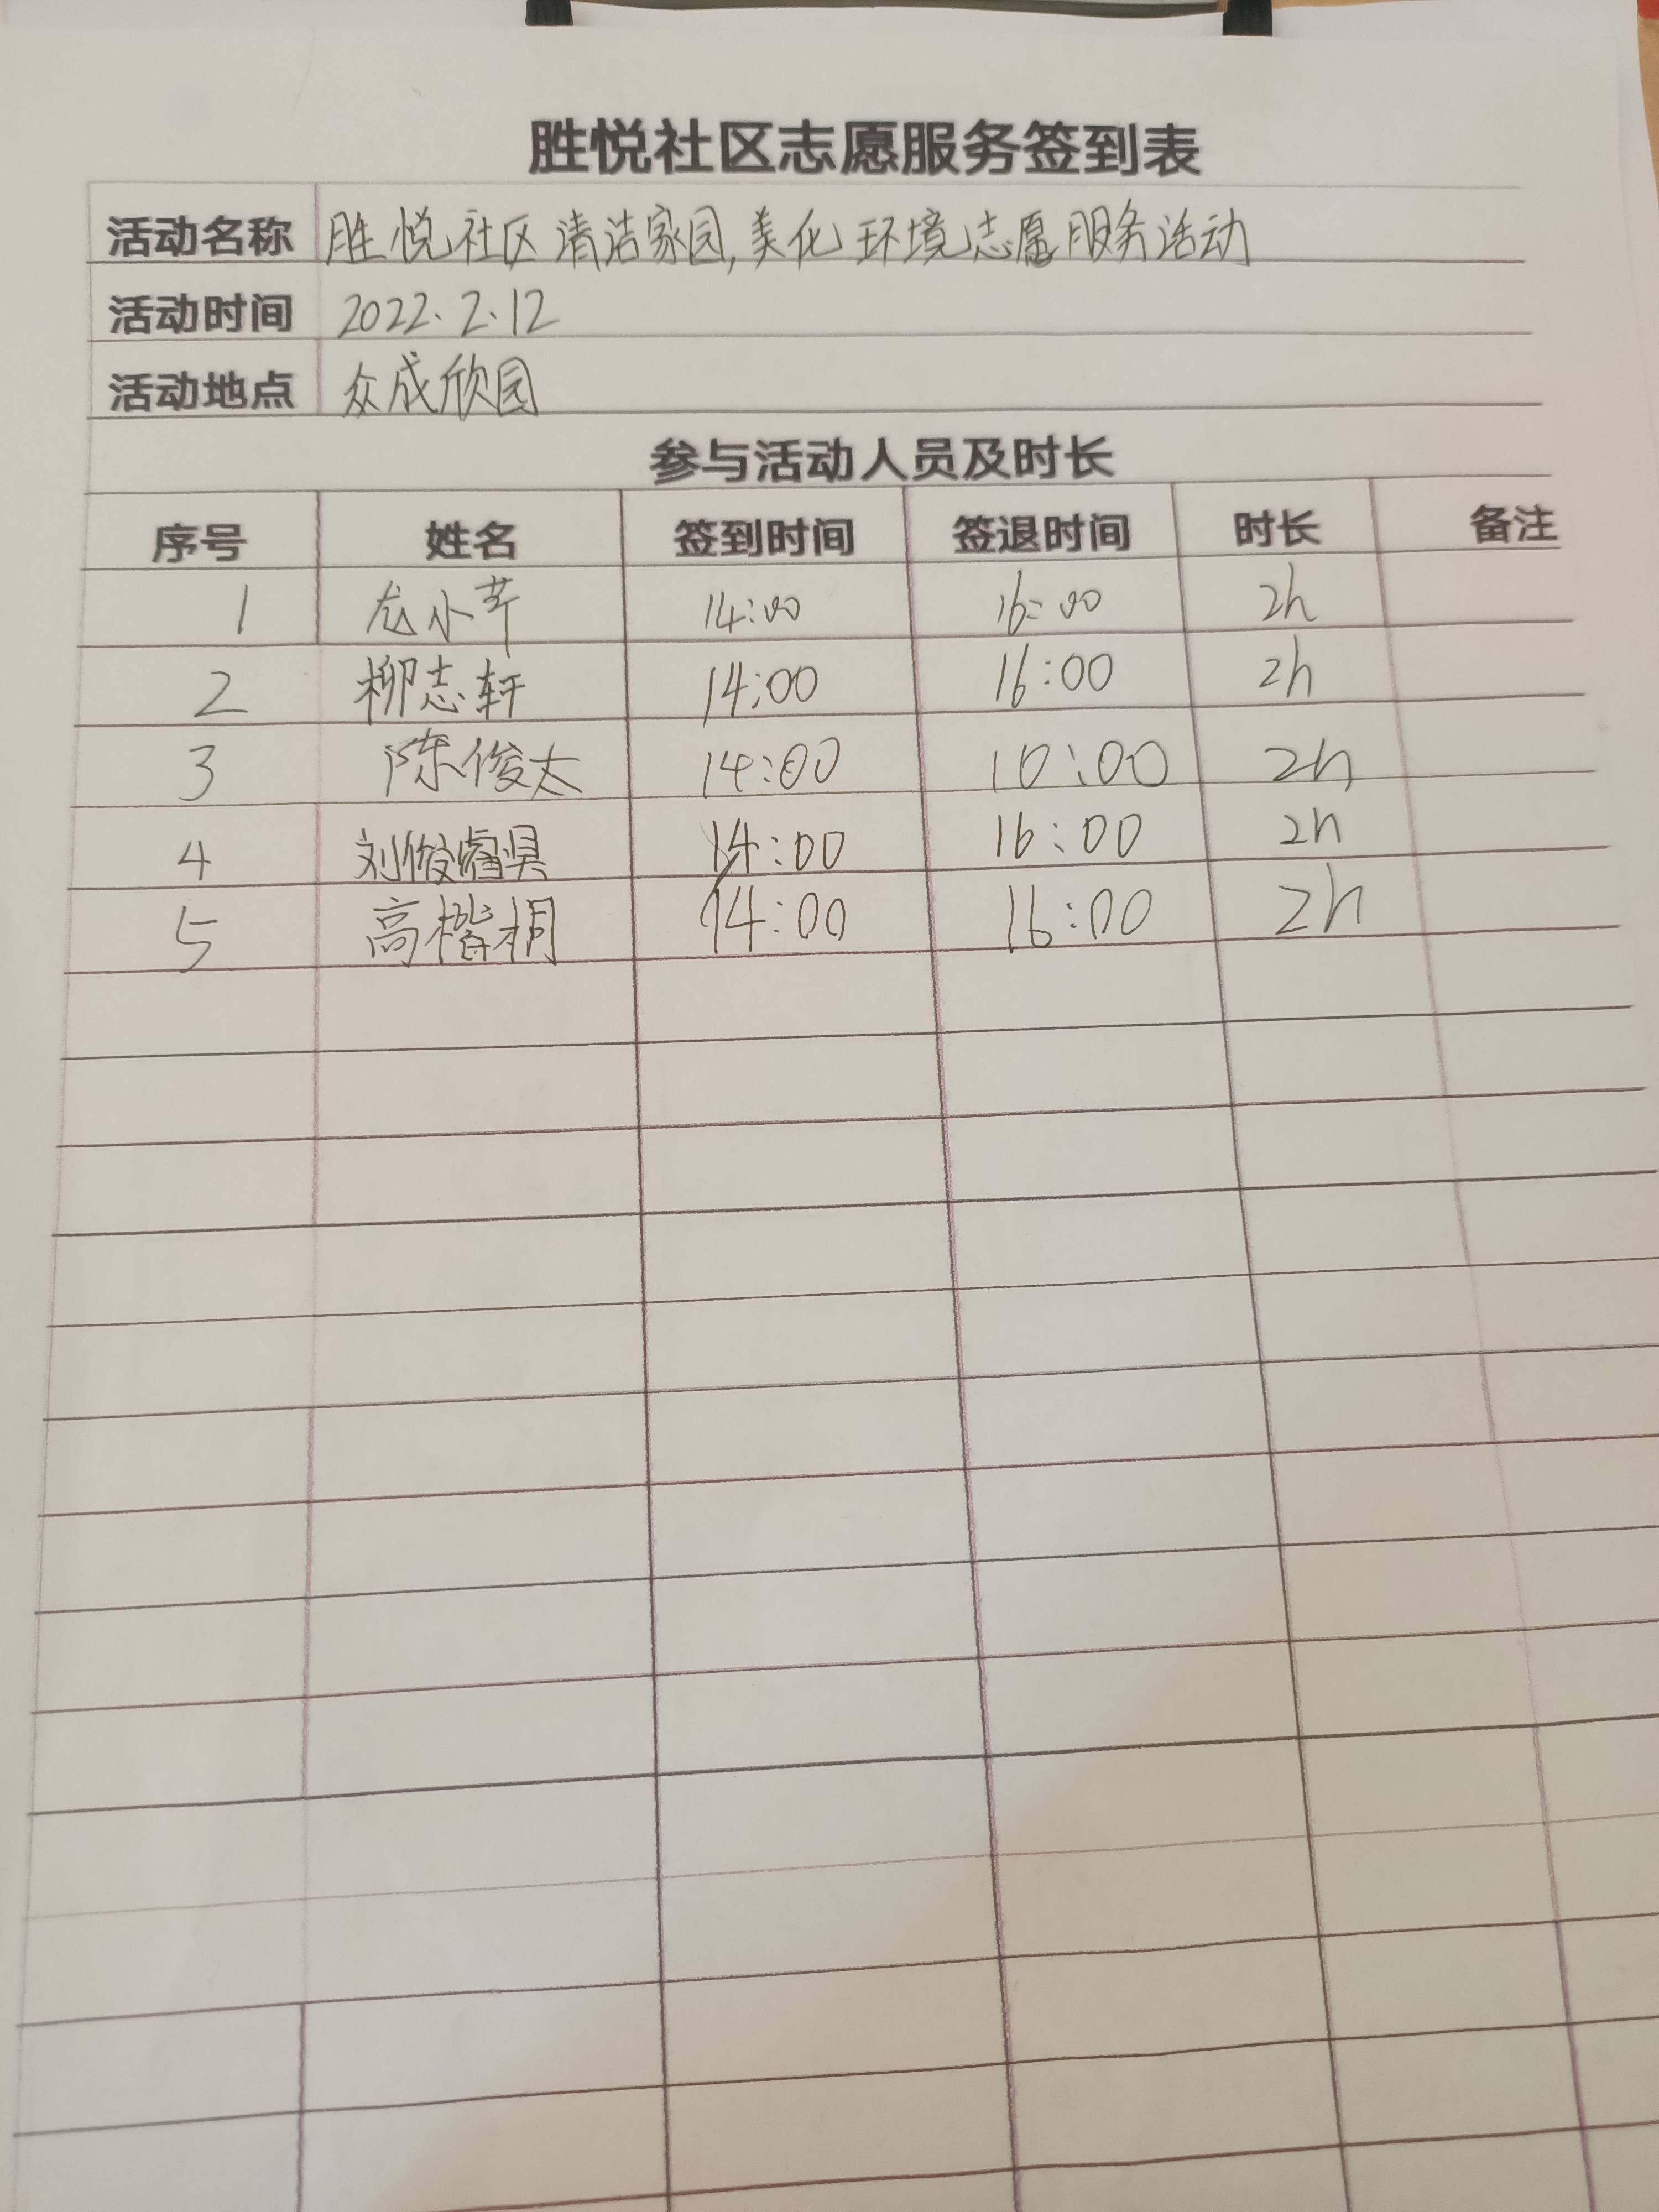 胜悦社区志愿服务签到表
活动名称 胜悦社区清洁家园,美化环境志愿服务活动
活动时间 2022.2.12
活动地点 众成欣园
参与活动人员及时长
序号 姓名 签到时间 签退时间 时长 备注
1 14:00 16:00 2h
2 柳志轩 14:00 16:00 2h
3 陈俊太 14:00 10:00 2h
4 14:00 16:00 2h
5 高楷桐 14:00 16:00 2h